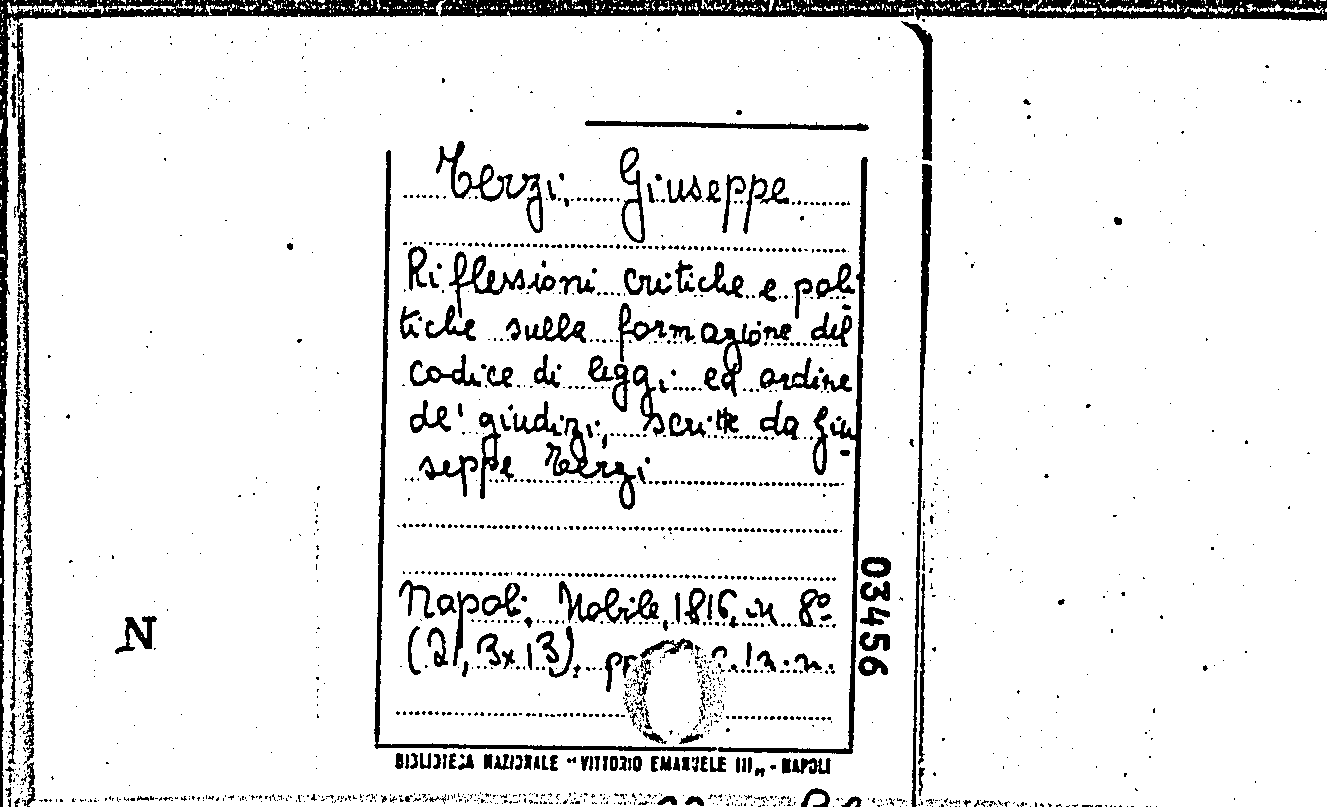 Terzi, Giuseppe
Riflessioni critiche e poli-
tiche sulla formazione del
codice di leggi ed ordine
de' giudizi, scritte da Giu-
seppe Terzi
Napoli, Nobile, 1816, in 8º
(21,3x13),
03456
N
BIBLIOTECA NAZIONALE "VITTORIO EMANUELE III„ - NAPOLI